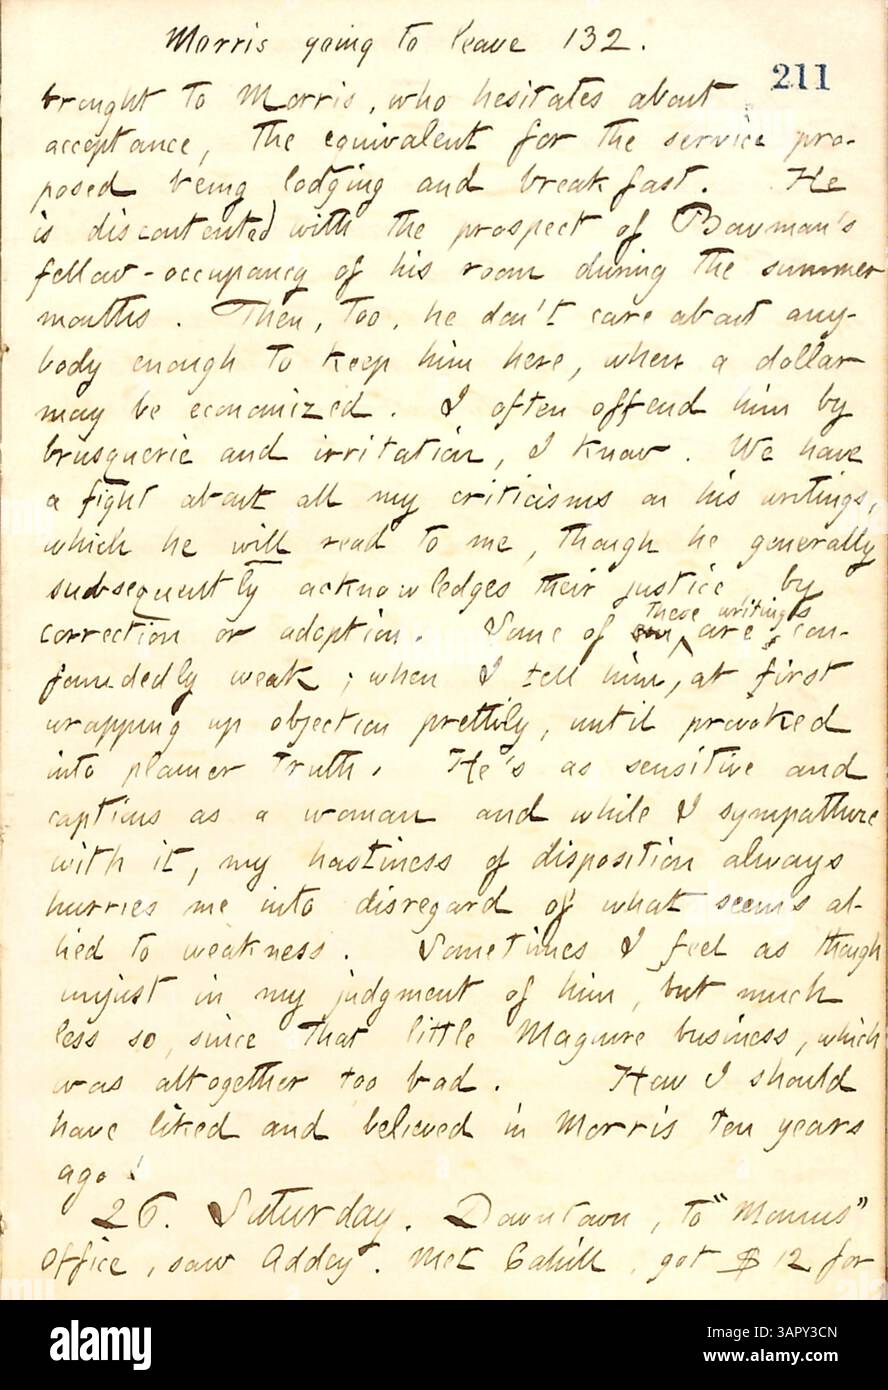 Morris going to leave 132.
211
brought to Morris, who hesitates about
acceptance, the equivalent for the service pro-
posed being lodging and breakfast. He
is discontented with the prospect of Bowman's
fellow-occupancy of his room during the summer
months. Then, too, he don't care about any-
body enough to keep him here, when a dollar
may be economized. I often offend him by
brusquerie and irritation, I know. We have
a fight about all my criticisms on his writings,
which he will read to me, though he generally
subsequently acknowledges their justice by
correction or adoption. Some of these writings are con-
foundedly weak; when I tell him, at first
wrapping up objection prettily, until provoked
into plainer truth. He's as sensitive and
captious as a woman and while I sympathize
with it, my hastiness of disposition always
hurries me into disregard of what seems al-
lied to weakness. Sometimes I feel as though
unjust in my judgment of him, but much
less so, since that little Maguire business, which
was altogether too bad. How I should
have liked and believed in Morris ten years
ago!
26. Saturday. Downtown, to "Momus"
office, saw Addey. Met Cahill, got $12 for
alamy
Image ID: 3APY3CN
www.alamy.com